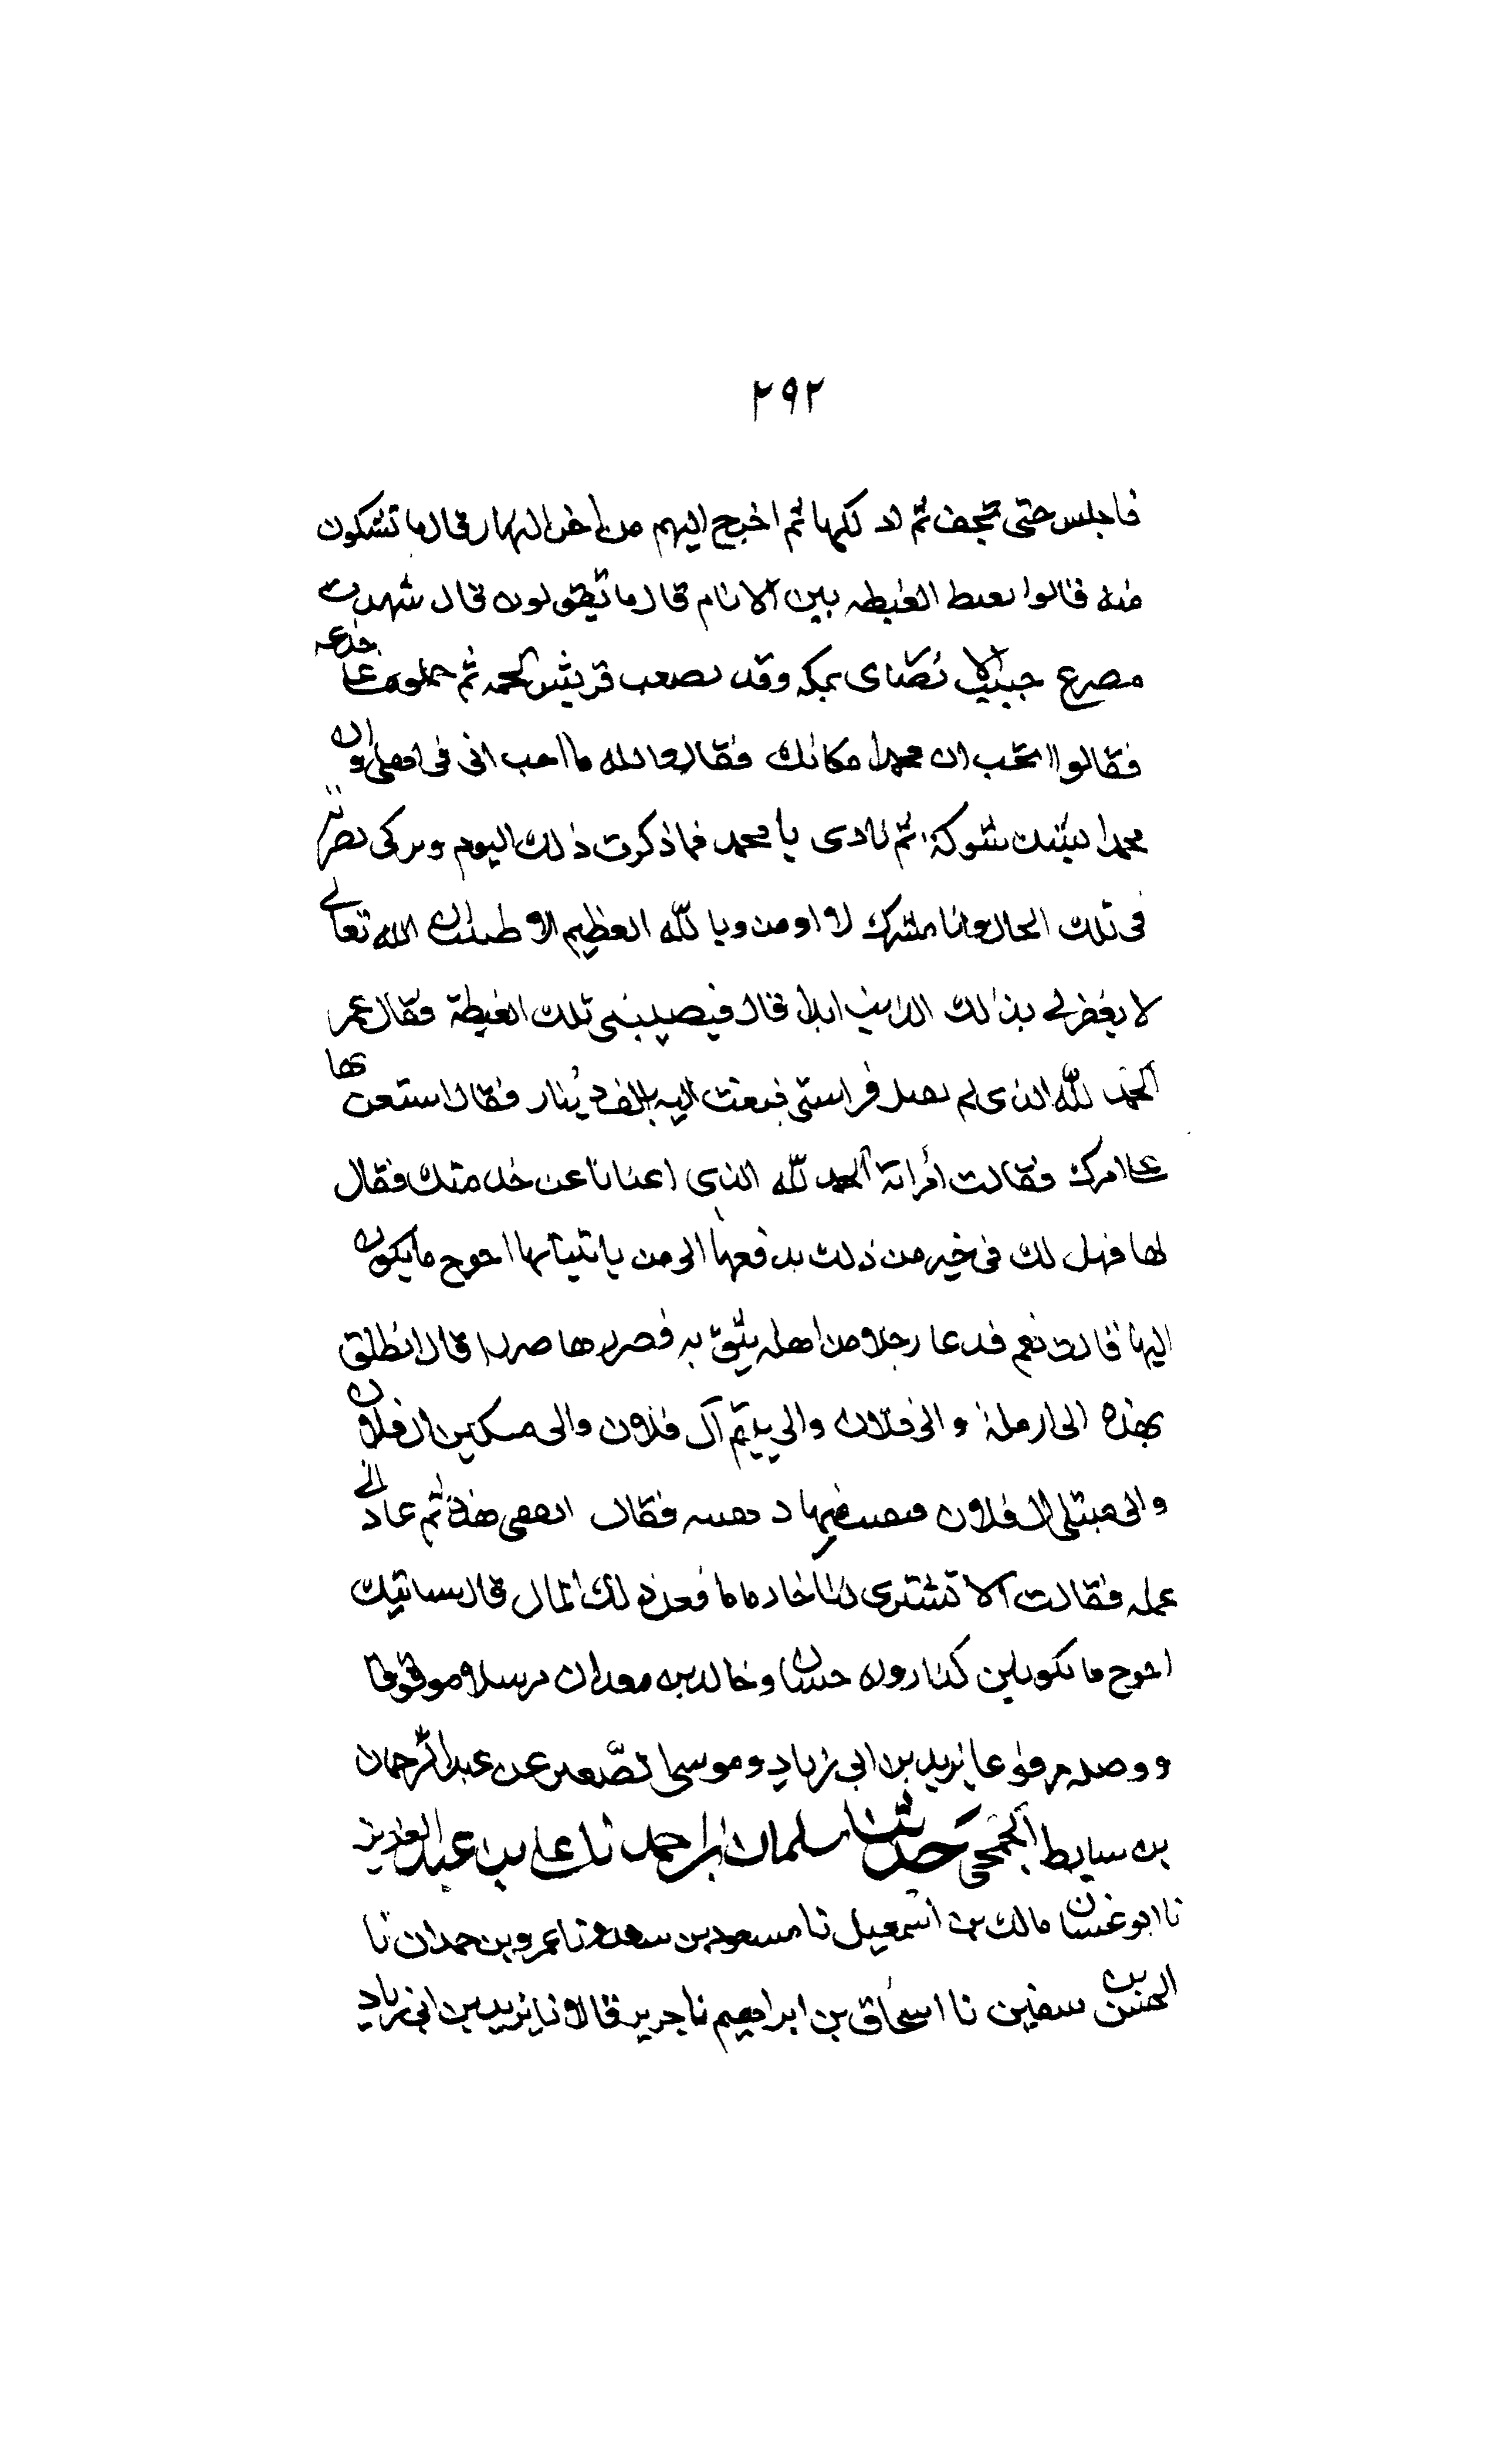 ٢٩٢
فاجلس حتى تجف ثم اد لكها ثم اخرج اليهم من اخر النهار قال ما تشكون
منه قالوا يغنط الغنطه بين الانام قال ما تقولون قال شهدت
مصرع خبيب الانصاى بمكه وقد بضعت قريش لحمه ثم حملوه على جذعه
فقالوا اتحب ان محمدا مكانك فقال والله ما احب انى فى اهلى وان
محمدا شيك شوكة ثم نادى يا محمد فما ذكرت ذلك اليوم وتركى نصرته
فى تلك الحال وانا مشرك لا اومن وبا لله العظيم الا ظننت ان الله تعالى
لا يغفر لى بذلك الذنب ابدا قال فيصيبنى تلك الغنطة فقال عمر
الحمد لله الذى لم يفيل فراستى فبعث اليه بالف دينار فقال استعن بها
على امرك فقالت امراته الحمد لله الذى اغنانا عن خدمتك فقال
لها فهل لك فى خير من ذلك ندفعها الى من ياتينا بها احوج ما يكون
اليها قالت نعم فدعا رجلا من اهله يثق به فصررها صررا قال انطلق
بهذه الى ارملة والى فلان والى يتيم آل فلان والى مسكين ال فلان
والى مبتلى ال فلان فبقيت فيها ذهيبه فقال انفقى هذه ثم عاد الى
عمله فقالت الا تشترى لنا خادما ما فعل ذلك المال قال سياتيك
احوج ما تكونين كذا رواه حسان وخالد بن معدان مرسلا موقوفا
ووصله مرفوعا يزيد بن ابى زياد وموسى الصغير عن عبد الرحمان
بن سابط الجمحى حدثنا سلمان بن احمد نا على بن عبد العزيز
نا ابو غسان مالك بن اسمعيل نا مسعود بن سعد ونا عمرو بن حمدان نا
الحسن بن سفين نا اسحاق بن ابراهيم نا جرير قالا نا يزيد بن ابى زياد